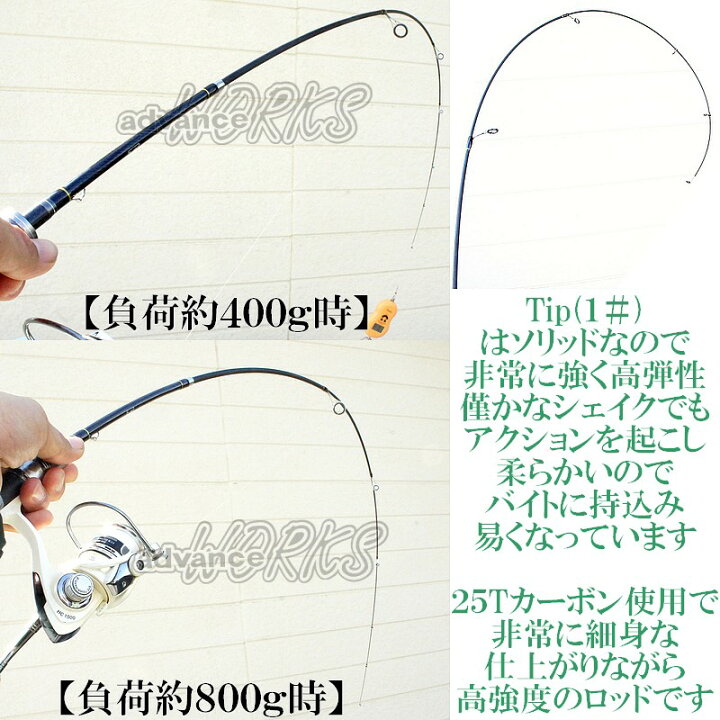 advance WORKS
【負荷約400g時】
Tip(1＃)
はソリッドなので
非常に強く高弾性
僅かなシェイクでも
アクションを起こし
柔らかいので
バイトに持込み
易くなっています
advance WORKS
【負荷約800g時】
25Tカーボン使用で
非常に細身な
仕上がりながら
高強度のロッドです